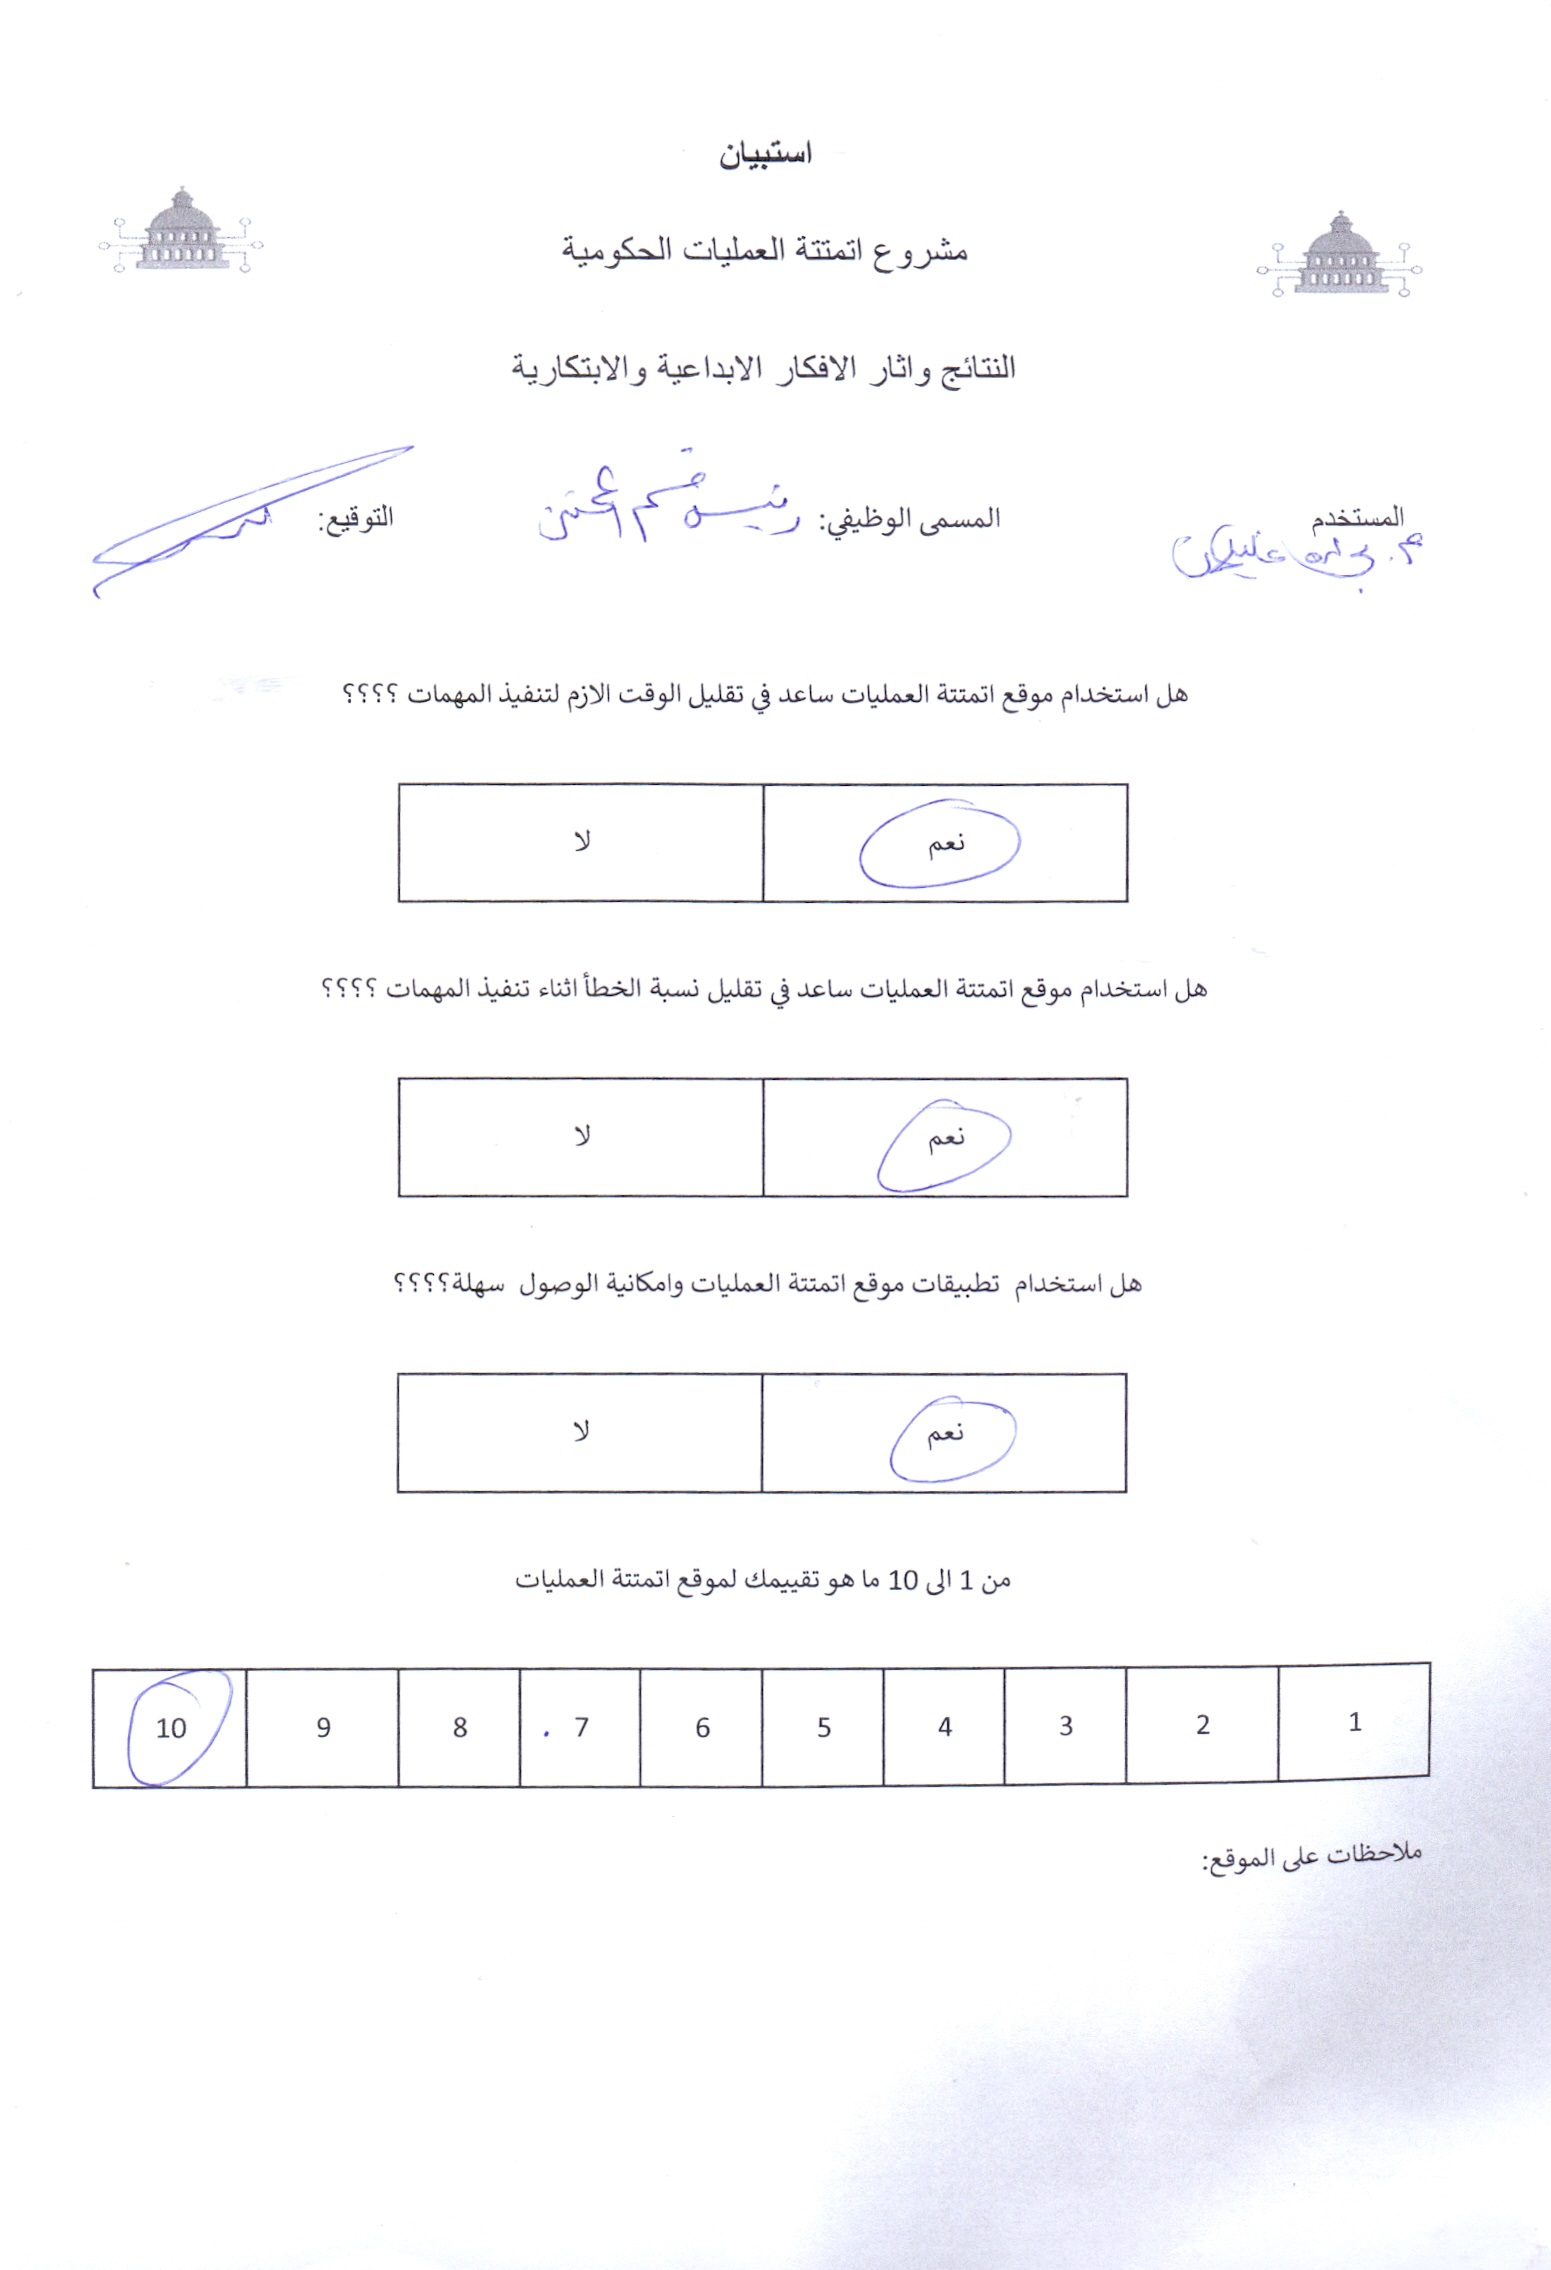 استبيان
مشروع اتمتتة العمليات الحكومية
النتائج واثار الافكار الابداعية والابتكارية
المستخدم المسمى الوظيفي: رئيس قسم التوقيع:
م.
هل استخدام موقع اتمتتة العمليات ساعد في تقليل الوقت الازم لتنفيذ المهمات ؟؟؟؟
نعم لا
هل استخدام موقع اتمتتة العمليات ساعد في تقليل نسبة الخطأ اثناء تنفيذ المهمات ؟؟؟؟
نعم لا
هل استخدام تطبيقات موقع اتمتتة العمليات وامكانية الوصول سهلة؟؟؟؟
نعم لا
من 1 الى 10 ما هو تقييمك لموقع اتمتتة العمليات
1 2 3 4 5 6 7 8 9 10
ملاحظات على الموقع: